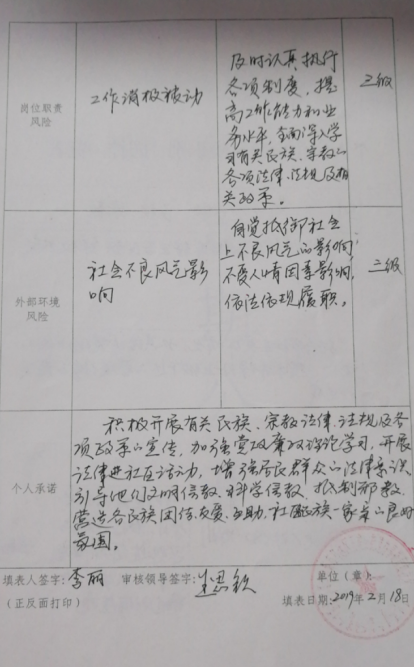 岗位职责
风险
工作消极被动
及时认真执行
各项制度，提
高工作能力和业
务水平，全面深入学
习有关民族、宗教的
各项法律、法规及相
关政策。
三级
外部环境
风险
社会不良风气影
响
自觉抵御社会
上不良风气的影响，
不受人情因素影响，
依法依规履职。
三级
个人承诺
积极开展有关民族、宗教法律、法规及各
项政策的宣传，加强党风廉政理论学习，开展
法律进社区活动，增强居民群众的法律意识
引导他们文明信教、科学信教、抵制邪教，
营造各民族团结友爱、互助、社区民族一家亲的良好
氛围。
填表人签字：李丽 审核领导签字： 单位（章）：
（正反面打印） 填表日期：2019年2月18日